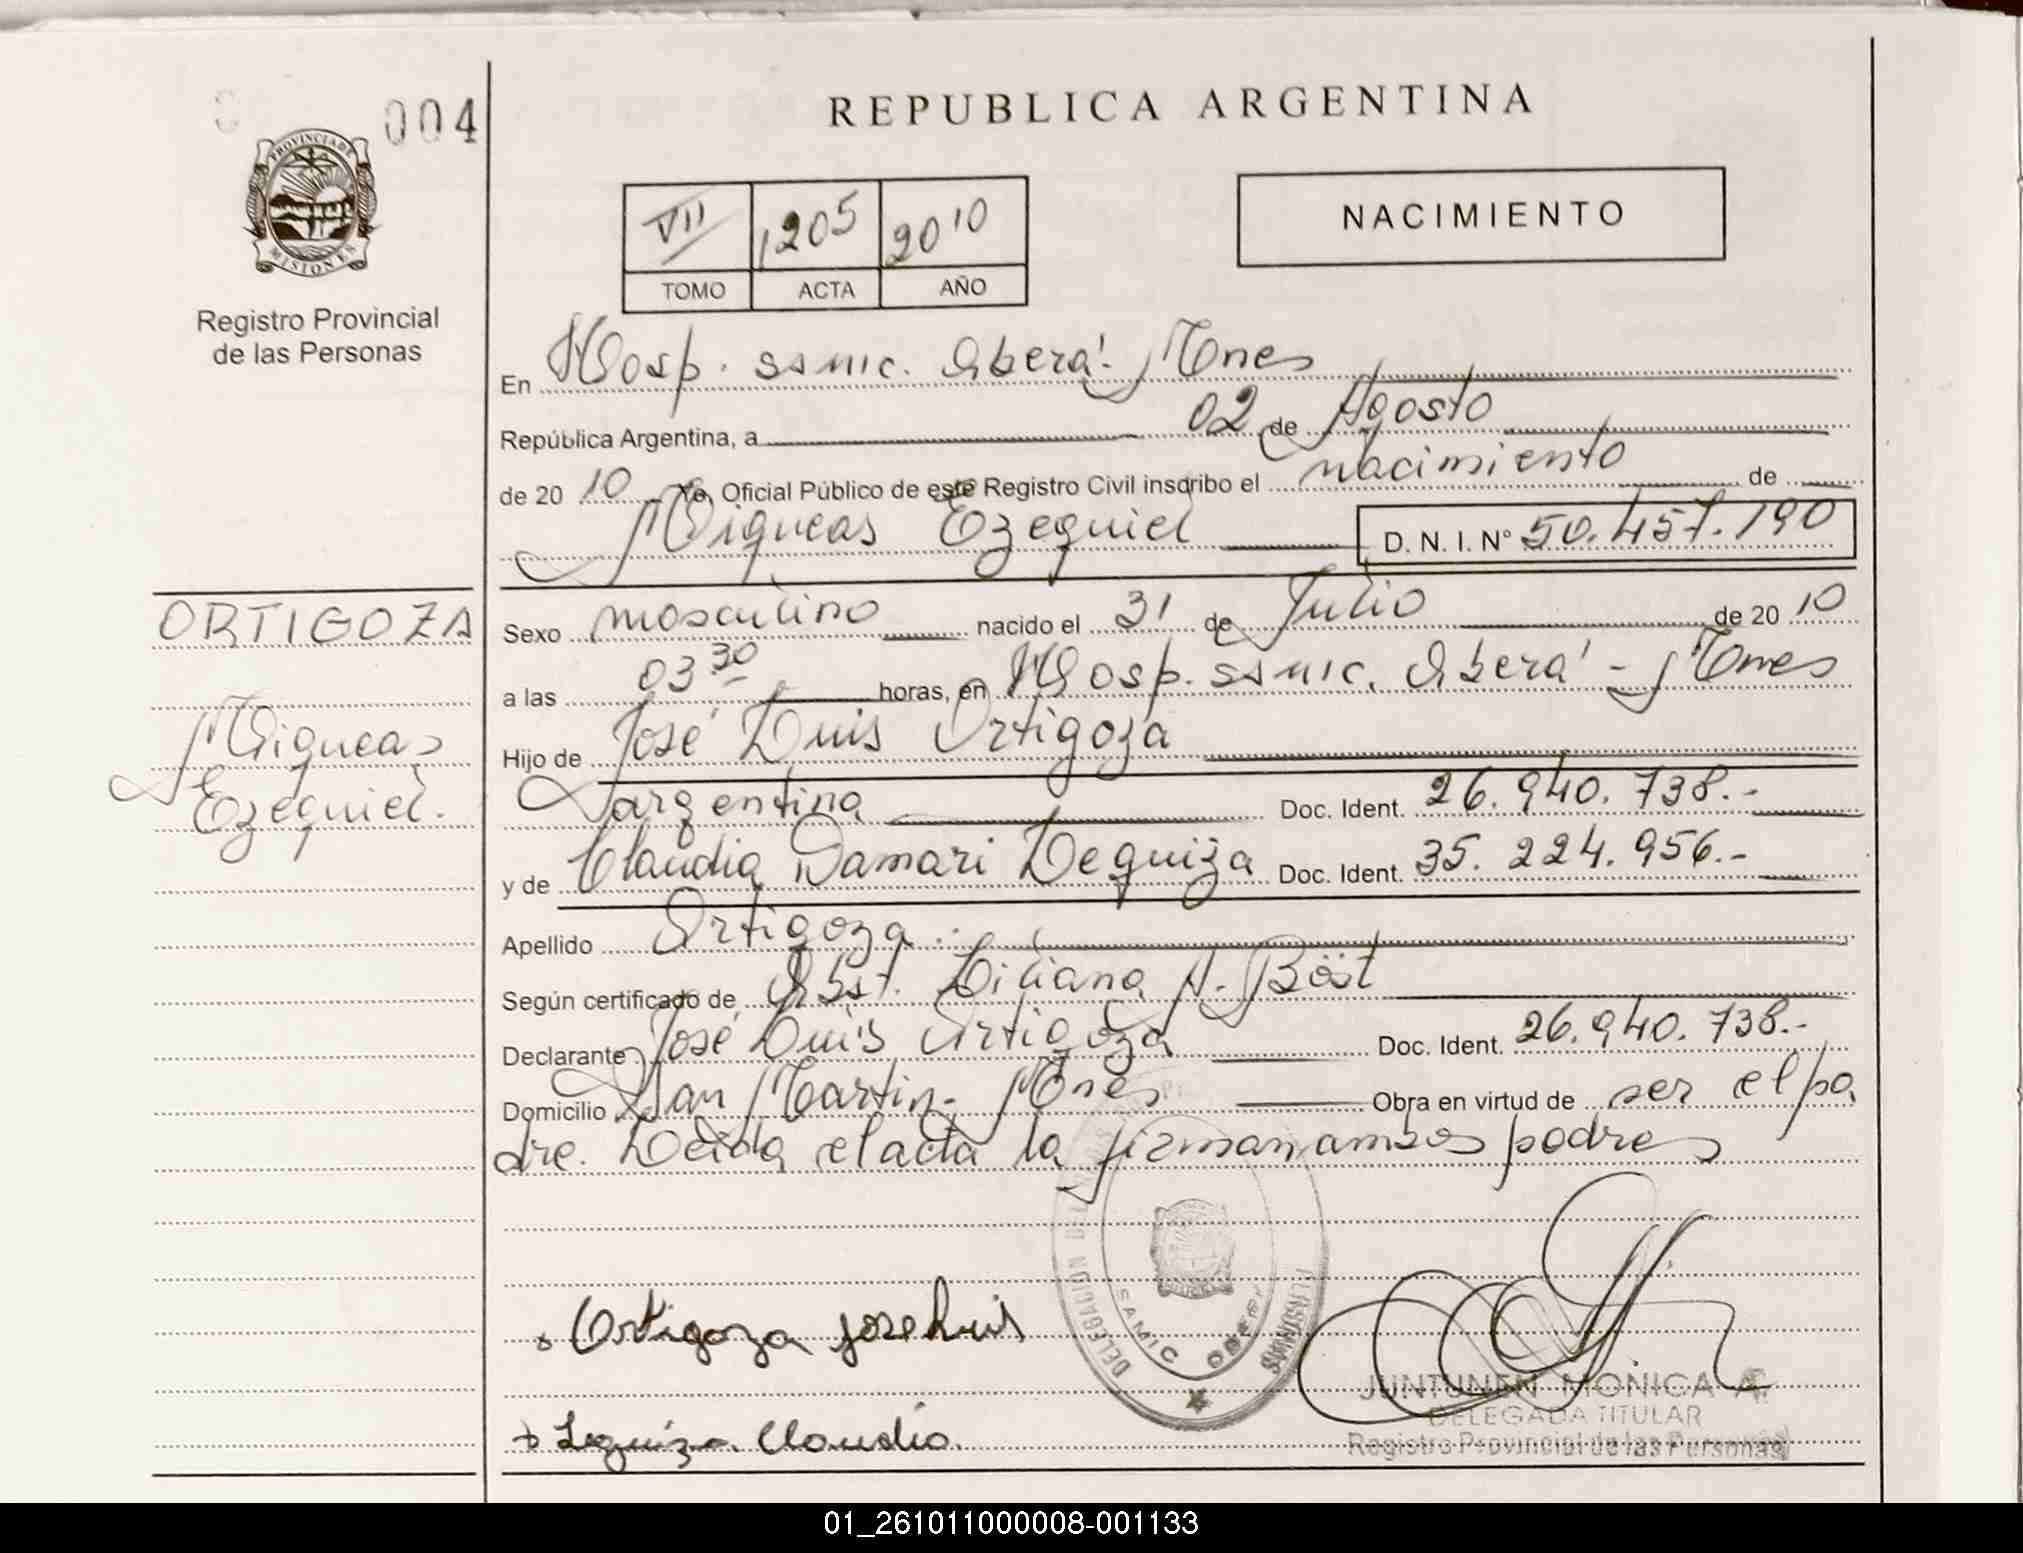 004
PROVINCIA DE
MISIONES
Registro Provincial
de las Personas
ORTIGOZA
Miqueas
Ezequiel.
REPUBLICA ARGENTINA
VII 1205 2010
TOMO ACTA AÑO
NACIMIENTO
En Hosp. SAMIC. Oberá - Mnes
República Argentina, a 02 de Agosto
de 20 10 Yo, Oficial Público de este Registro Civil inscribo el nacimiento de
Miqueas Ezequiel D. N. I. N° 50.457.190
Sexo masculino nacido el 31 de Julio de 20 10
a las 03 30 horas, en Hosp. SAMIC. Oberá - Mnes
Hijo de José Luis Ortigoza
argentina Doc. Ident. 26.940.738.-
y de Claudia Damari Leguiza Doc. Ident. 35.224.956.-
Apellido Ortigoza.
Según certificado de Obst. Liliana A. Böst
Declarante José Luis Ortigoza Doc. Ident. 26.940.738.-
Domicilio San Martin - Mnes Obra en virtud de ser el pa
dre. Leida el acta la firman ambos padres
DELEGACION DEL PERSONAS
SAMIC OBERA
Ortigoza jose Luis
Leguiza Claudia
JUNTUNEN MONICA A.
DELEGADA TITULAR
Registro Provincial de las Personas
01_261011000008-001133